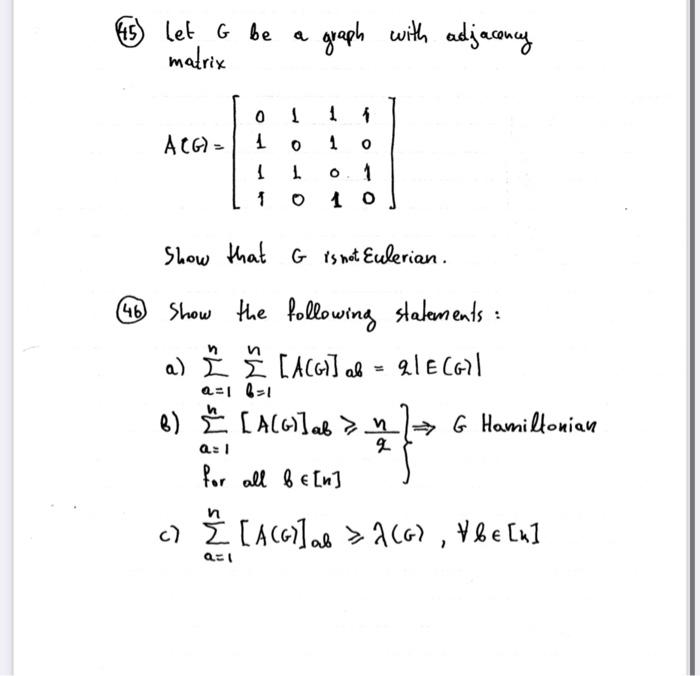 (45) Let G be a graph with adjacency
matrix
A(G) = [ 0 1 1 1
1 0 1 0
1 1 0 1
1 0 1 0 ]
Show that G is not Eulerian.
(46) Show the following statements :
a) ∑_{a=1}^{n} ∑_{b=1}^{n} [A(G)]_{ab} = 2|E(G)|
b) ∑_{a=1}^{n} [A(G)]_{ab} ≥ n/2 } ⇒ G Hamiltonian
for all b ∈ [n]
c) ∑_{a=1}^{n} [A(G)]_{ab} ≥ λ(G) , ∀ b ∈ [n]